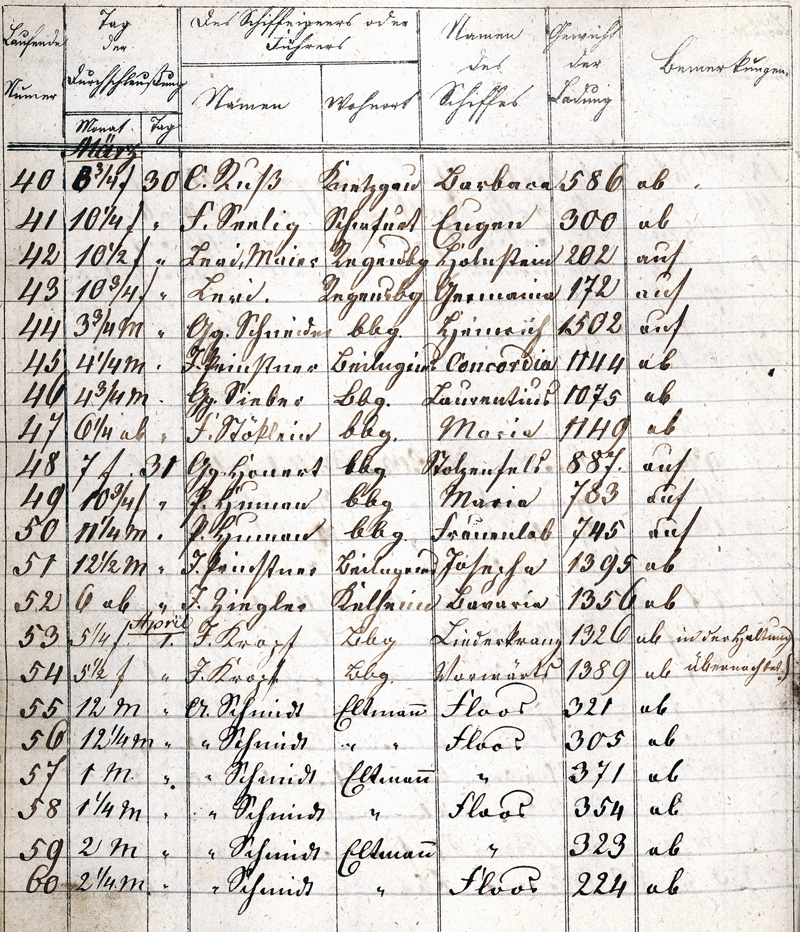 Laufende Numer | Tag der Durchschleußung | Des Schiffeigners oder Führers | Namen des Schiffes | Gewicht der Ladung | Bemerkungen.
Monat. | Tag | Namen | Wohnort
März
40 8 3/4 f 30 C. Ruß Knetzgau Barbara 586 ab
41 10 1/4 f " F. Seelig Schwfurt Eugen 300 ab
42 10 1/2 f " Levi, Maier Regensbg Holnstein 202 auf
43 10 3/4 f " Levi. Regensbg Germania 172 auf
44 3 3/4 M " Gg. Schneider bbg. Heinrich 1502 auf
45 4 1/4 M " J. Beilngries Concordia 1144 ab
46 4 3/4 M " Gg. Sieber Bbg. Laurentius 1075 ab
47 6 1/4 ab " F. Stößlein bbg. Maria 1149 ab
48 7 f. 31 Gg. Honert bbg Stolzenfels 887. auf
49 10 3/4 f " P. Human bbg Maria 783 auf
50 11 1/4 M " P. Human bbg. Frauenlob 745 auf
51 12 1/2 M " J. Beilngries Josepha 1395 ab
52 6 ab " J. Ziegler Kelheim Bavaria 1356 ab
April
53 5 1/4 f 1. J. Kropf Bbg Liederkranz 1326 ab in der Haltung
54 5 1/2 f " J. Kropf Bbg. Vorwärts 1389 ab übernachtet.)
55 12 M " A. Schmidt Eltmann Floos 321 ab
56 12 1/4 M " " Schmidt " " Floos 305 ab
57 1 M " " Schmidt Eltmann " 371 ab
58 1 1/4 M " " Schmidt " Floos 354 ab
59 2 M " " Schmidt Eltmann " 323 ab
60 2 1/4 M. " " Schmidt " Floos 224 ab